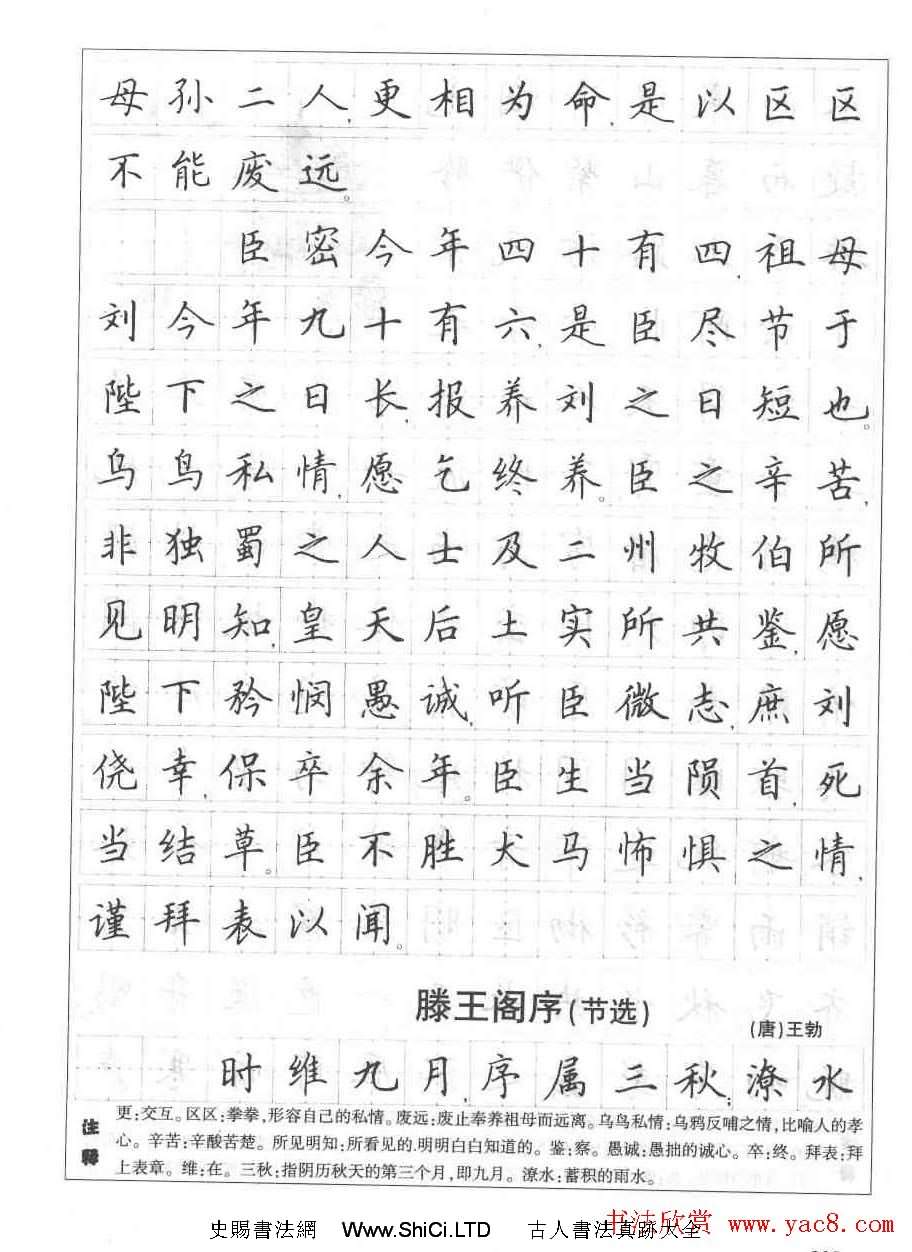 母孙二人,更相为命,是以区区
不能废远。
臣密今年四十有四,祖母
刘今年九十有六,是臣尽节于
陛下之日长,报养刘之日短也。
乌鸟私情,愿乞终养。臣之辛苦,
非独蜀之人士及二州牧伯所
见明知,皇天后土实所共鉴,愿
陛下矜悯愚诚,听臣微志,庶刘
侥幸,保卒余年。臣生当陨首,死
当结草。臣不胜犬马怖惧之情,
谨拜表以闻。
滕王阁序(节选)
(唐)王勃
时维九月,序属三秋;潦水
注释
更:交互。区区:拳拳,形容自己的私情。废远:废止奉养祖母而远离。乌鸟私情:乌鸦反哺之情,比喻人的孝
心。辛苦:辛酸苦楚。所见明知:所看见的.明明白白知道的。鉴:察。愚诚:愚拙的诚心。卒:终。拜表:拜
上表章。维:在。三秋:指阴历秋天的第三个月,即九月。潦水:蓄积的雨水。
史賜書法網 Www.ShiCi.LTD 古人書法真跡大全
书法欣赏 www.yac8.com